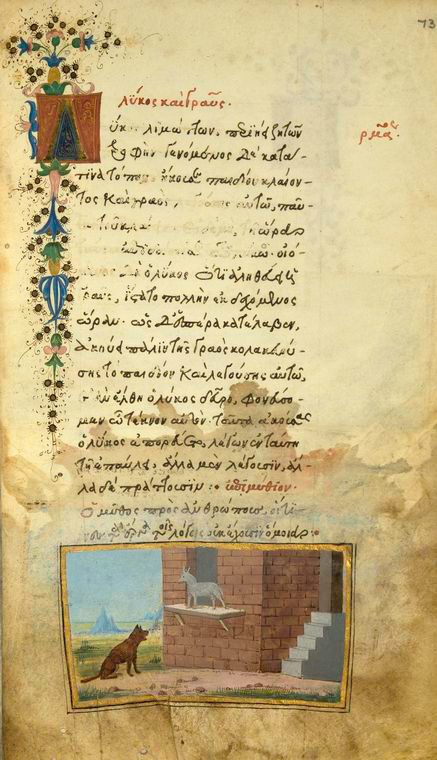 73
λύκος καὶ γραῦς.
ρμας.
λιμώττων, περιῄει ζητῶν
τροφήν. γενόμενος δὲ κατά
τινα τόπον, ἤκουσε παιδίου κλαίον-
τος καὶ γραὸς, αὐτῷ, παῦ-
ὥρᾳ
οἰό-
μενος δὲ ὁ λύκος ὅτι ἀληθεύει
γραῦς, ἵστατο πολλὴν ἐκδεχόμενος
ὥραν. ὡς δ' ἑσπέρα κατέλαβεν,
ἀκούει πάλιν τῆς γραὸς κολακευού-
σης τὸ παιδίον καὶ λεγούσης αὐτῷ,
ἐὰν ἔλθῃ ὁ λύκος δεῦρο, φονεύσο-
μεν ὦ τέκνον αὐτόν. ταῦτα ἀκούσας
ὁ λύκος ἐπορεύετο, λέγων ἐν ταύτῃ
τῇ ἐπαύλει, ἄλλα μὲν λέγουσιν, ἄλ-
λα δὲ πράττουσιν :· ἐπιμύθιον·
Ὁ μῦθος πρὸς ἀνθρώπους, οἵτι-
τοῖς λόγοις οὐκ ἔχουσιν ὅμοια :·